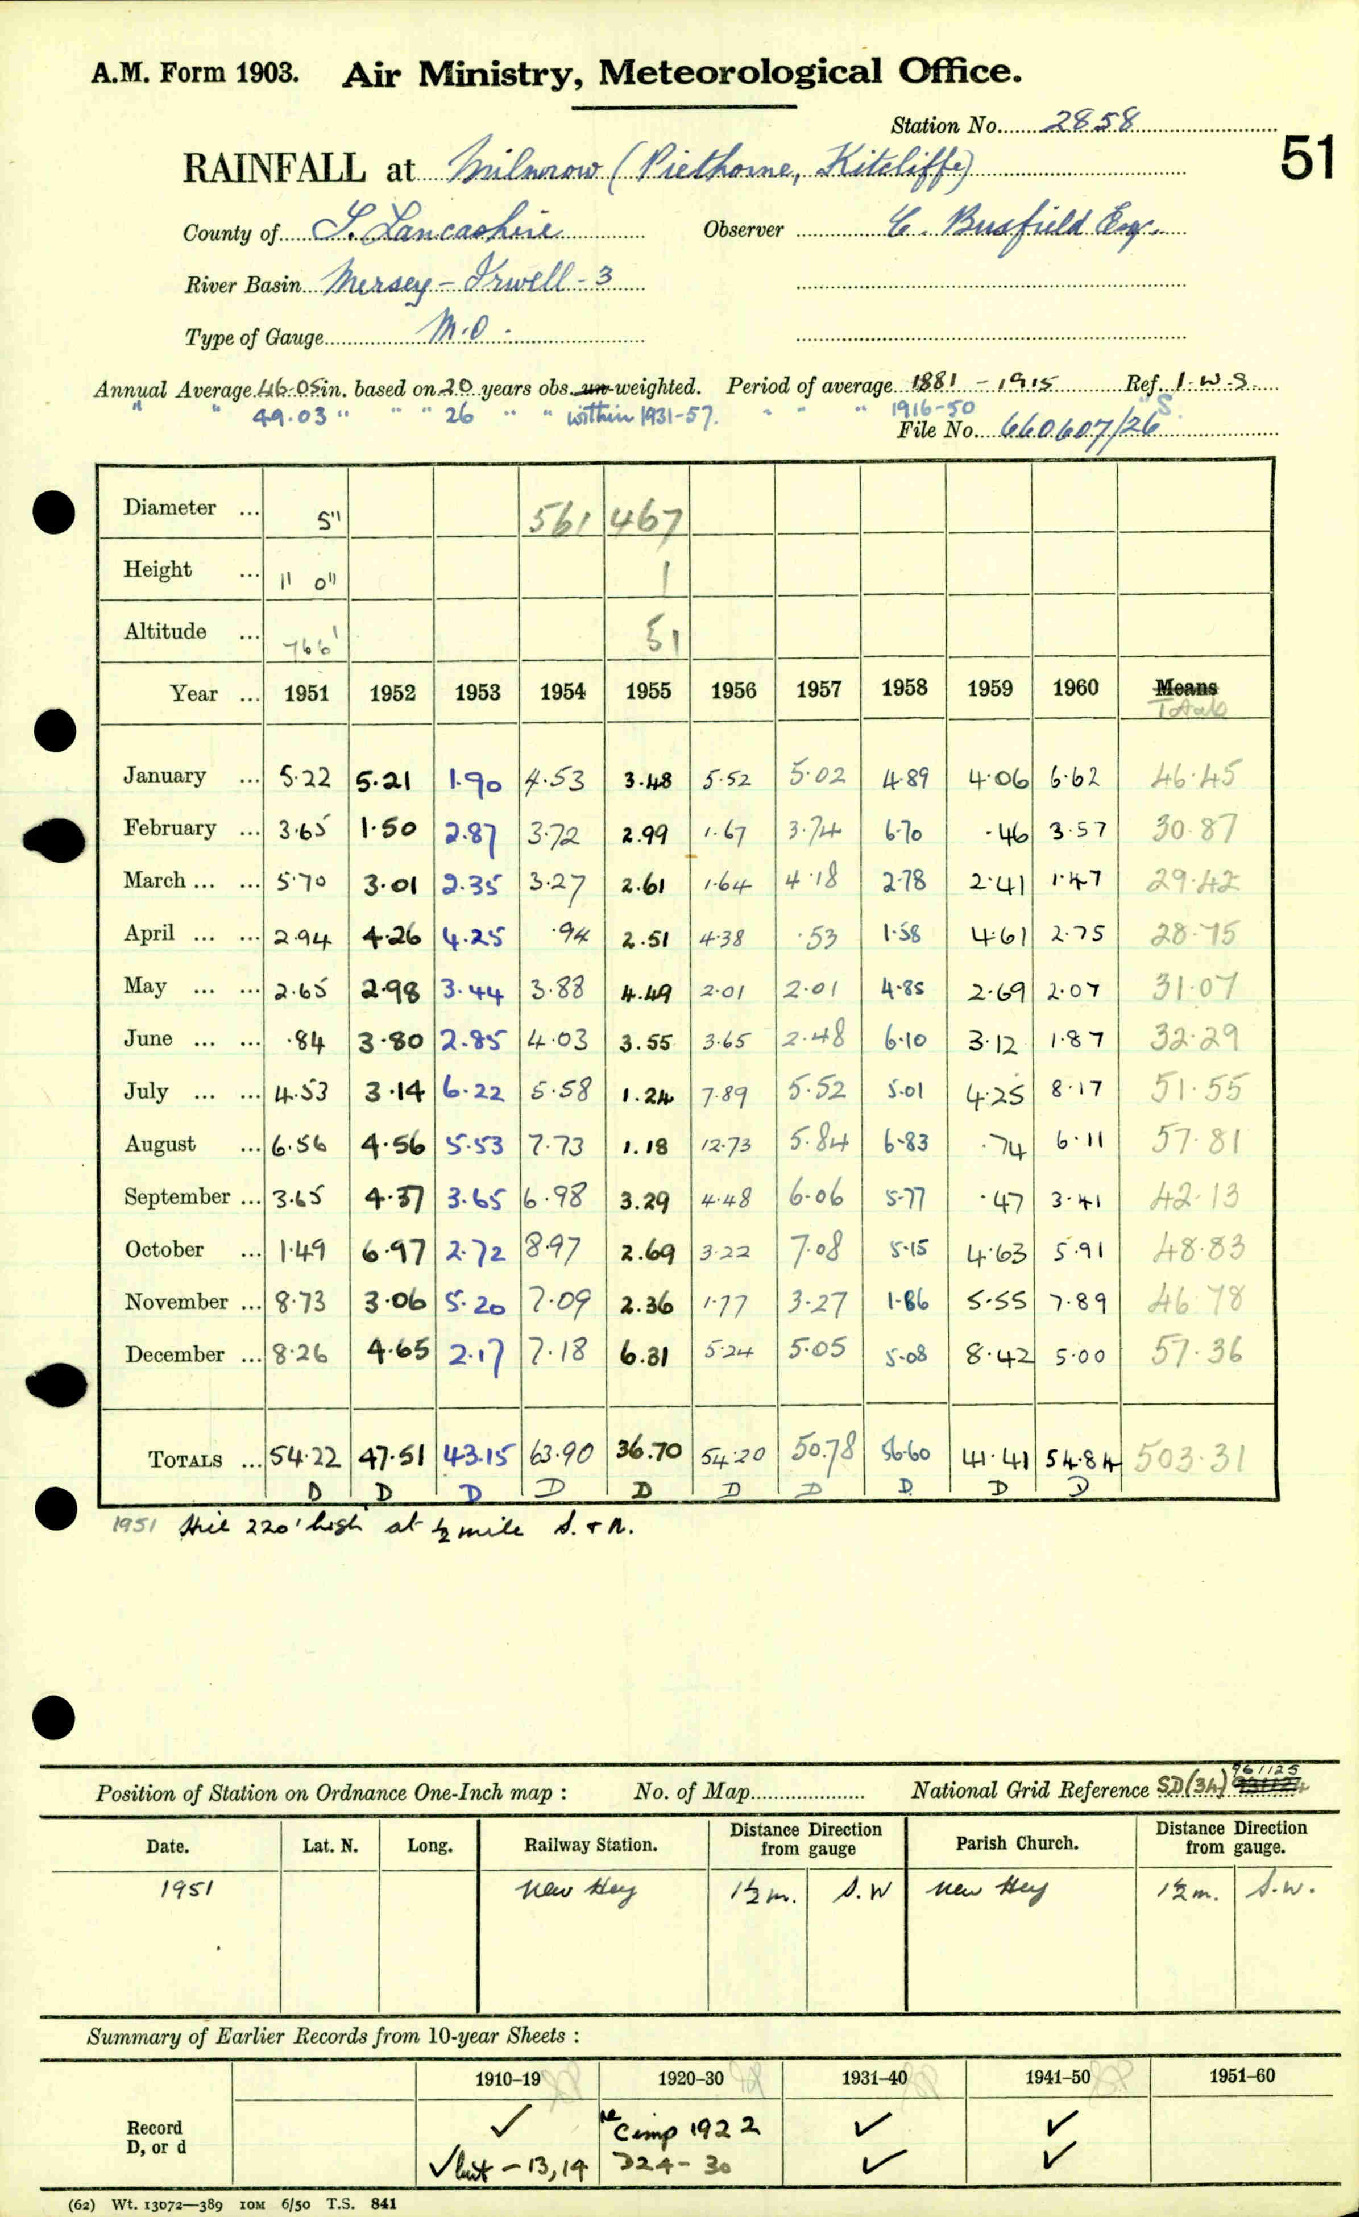 A.M. Form 1903. Air Ministry, Meteorological Office.
Station No. 2858
51
RAINFALL at Milnrow (Piethorne, Kitcliffe)
County of S. Lancashire Observer C. Busfield Esq.
River Basin Mersey - Irwell - 3
Type of Gauge M.O.
Annual Average 46.05 in. based on 20 years obs. un-weighted. Period of average 1881 - 1915 Ref. I.W.S.
" " 49.03 " " " 26 " " within 1931-57. " " " 1916-50 " S.
File No. 660607/26
Diameter ... 5" 561 467
Height ... 1' 0" 1
Altitude ... 766' 51
Year ... 1951 1952 1953 1954 1955 1956 1957 1958 1959 1960 Means
Totals
January ... 5.22 5.21 1.90 4.53 3.48 5.52 5.02 4.89 4.06 6.62 46.45
February ... 3.65 1.50 2.87 3.72 2.99 1.67 3.74 6.70 .46 3.57 30.87
March ... ... 5.70 3.01 2.35 3.27 2.61 1.64 4.18 2.78 2.41 1.47 29.42
April ... ... 2.94 4.26 4.25 .94 2.51 4.38 .53 1.58 4.61 2.75 28.75
May ... ... 2.65 2.98 3.44 3.88 4.49 2.01 2.01 4.85 2.69 2.07 31.07
June ... ... .84 3.80 2.85 4.03 3.55 3.65 2.48 6.10 3.12 1.87 32.29
July ... ... 4.53 3.14 6.22 5.58 1.24 7.89 5.52 5.01 4.25 8.17 51.55
August ... 6.56 4.56 5.53 7.73 1.18 12.73 5.84 6.83 .74 6.11 57.81
September ... 3.65 4.37 3.65 6.98 3.29 4.48 6.06 5.77 .47 3.41 42.13
October ... 1.49 6.97 2.72 8.97 2.69 3.22 7.08 5.15 4.63 5.91 48.83
November ... 8.73 3.06 5.20 7.09 2.36 1.77 3.27 1.86 5.55 7.89 46.78
December ... 8.26 4.65 2.17 7.18 6.31 5.24 5.05 5.08 8.42 5.00 57.36
TOTALS ... 54.22 47.51 43.15 63.90 36.70 54.20 50.78 56.60 41.41 54.84 503.31
D D D D D D D D D D
1951 Hill 220' high at ½ mile S. & N.
Position of Station on Ordnance One-Inch map : No. of Map National Grid Reference SD(34) 961125
Date. Lat. N. Long. Railway Station. Distance from gauge Direction Parish Church. Distance from gauge. Direction
1951 New Hey 1½ m. S.W New Hey 1½ m. S.W.
Summary of Earlier Records from 10-year Sheets :
1910–19 1920–30 1931–40 1941–50 1951–60
Record ✓ Comp 1922 ✓ ✓
D, or d ✓ but - 13, 14 D24 - 30 ✓ ✓
(62) Wt. 13072—389 10M 6/50 T.S. 841